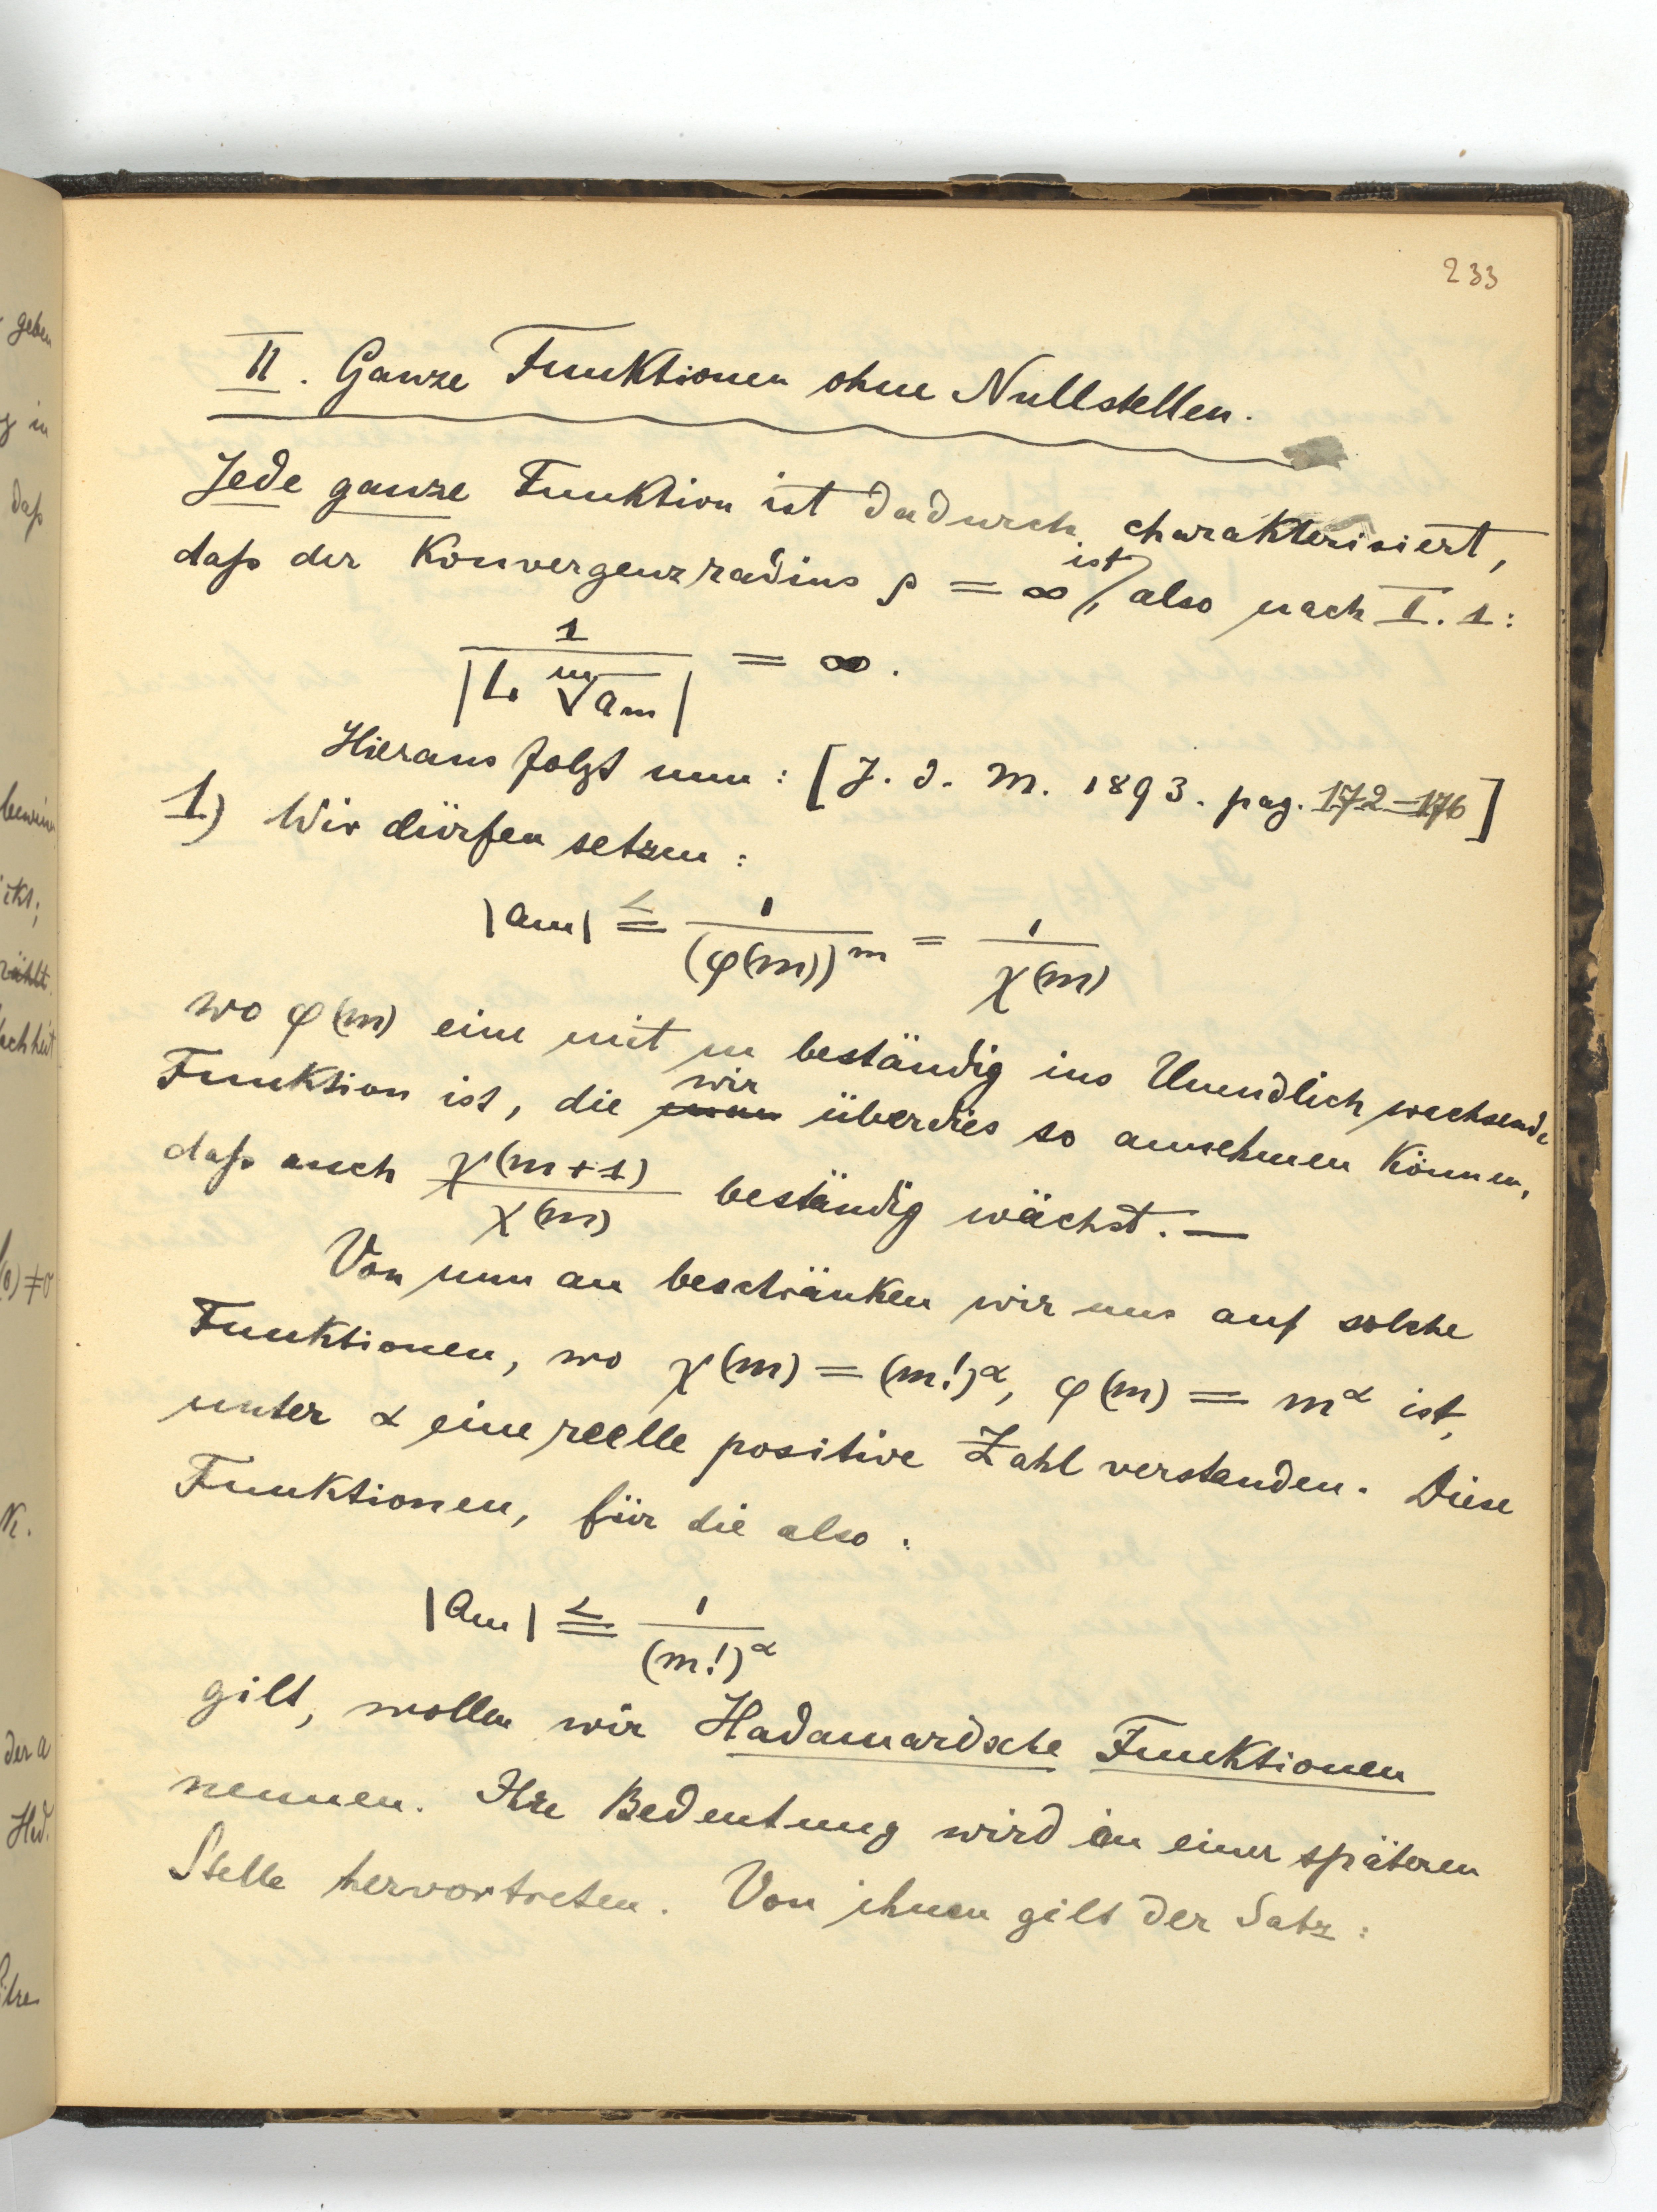 233
II. Ganze Funktionen ohne Nullstellen.
Jede ganze Funktion ist dadurch charakterisiert,
daß der Konvergenzradius ρ = ∞ ist, also nach I. 1:
1 / |L. ᵐ√aₘ| = ∞.
Hieraus folgt nun: [J. d. M. 1893. pag. 172–176]
1) Wir dürfen setzen:
|aₘ| ≦ 1 / (φ(m))ᵐ = 1 / χ(m)
wo φ(m) eine mit m beständig ins Unendlich wachsende
Funktion ist, die wir überdies so annehmen können,
daß auch χ(m+1) / χ(m) beständig wächst. —
Von nun an beschränken wir uns auf solche
Funktionen, wo χ(m) = (m!)^α, φ(m) = m^α ist,
unter α eine reelle positive Zahl verstanden. Diese
Funktionen, für die also:
|aₘ| ≦ 1 / (m!)^α
gilt, wollen wir Hadamardsche Funktionen
nennen. Ihre Bedeutung wird an einer späteren
Stelle hervortreten. Von ihnen gilt der Satz:
geben
in
daß
der a
Had.